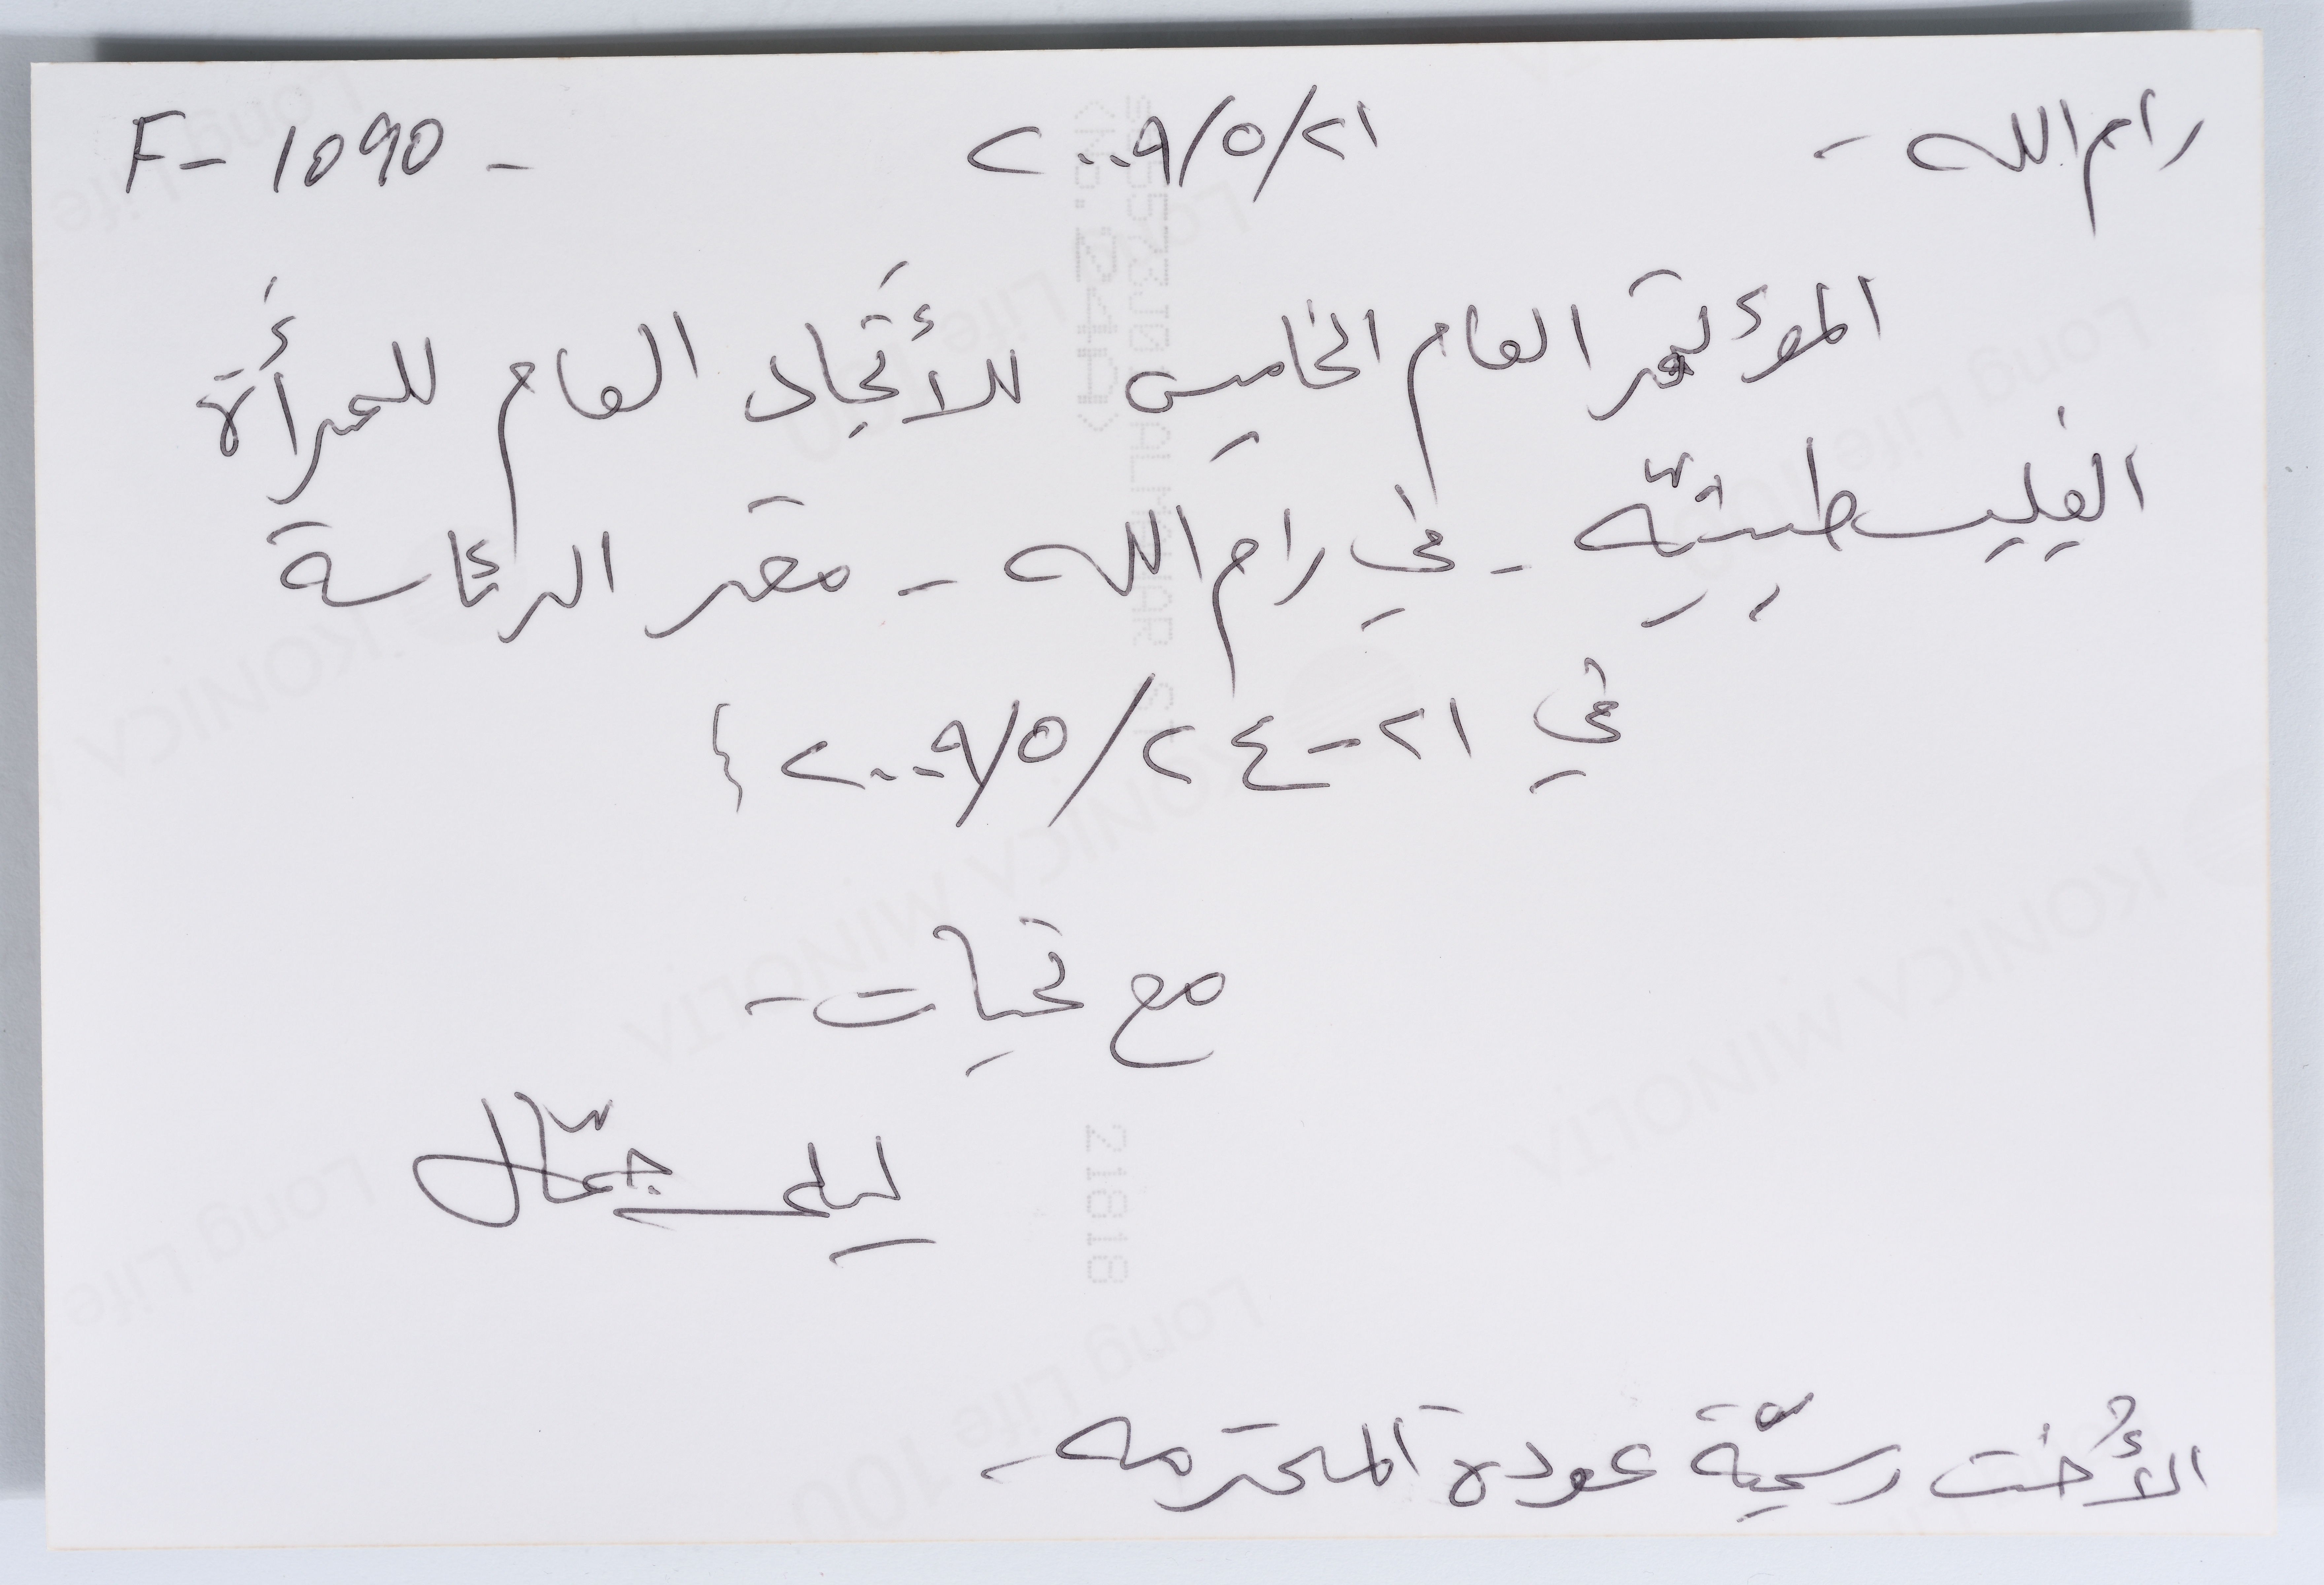 رام الله - ٢٠٠٩/٥/٢١ F- 1090 -
المؤتمر العام الخامس للأتحاد العام للمرأة
الفلسطينيّه - في رام الله - مقر الرئاسة
في ٢١-٢٠٠٩/٥/٢٤ }
مع تحيات -
ليلى جمّال
الأخت رسميّة عودة المحترمه -
KONICA MINOLTA
Long Life 100
21818